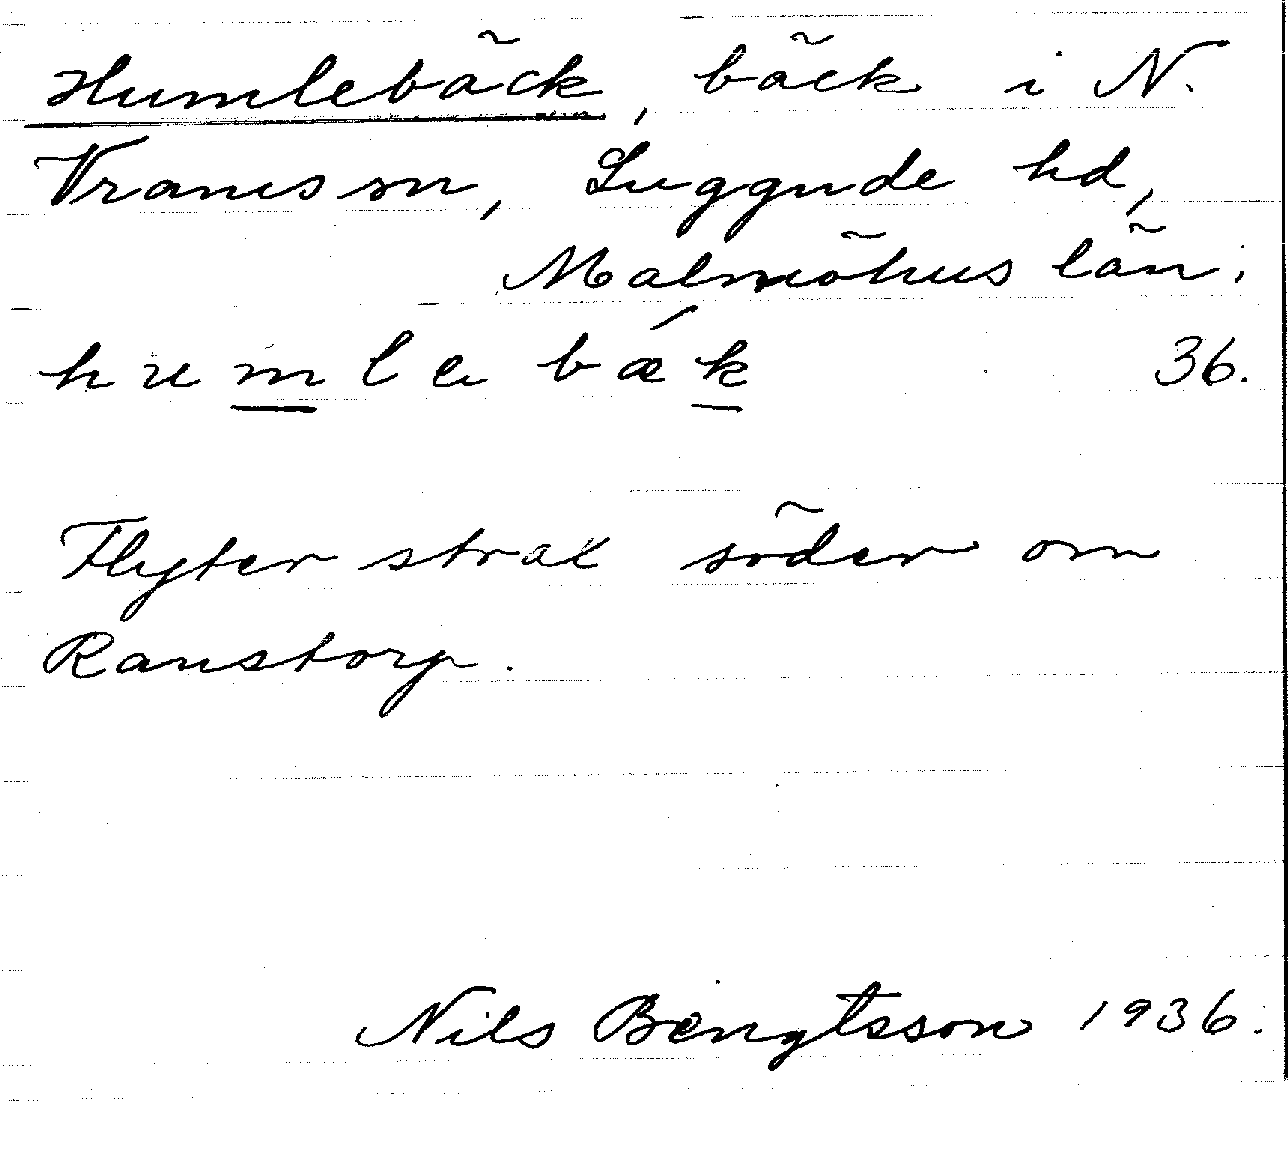 Humlebäck, bäck i N.
Vrams sn, Luggude hd,
Malmöhus län.
humlebǽk 36.
Flyter strax söder om
Ranstorp.
Nils Bengtsson 1936.